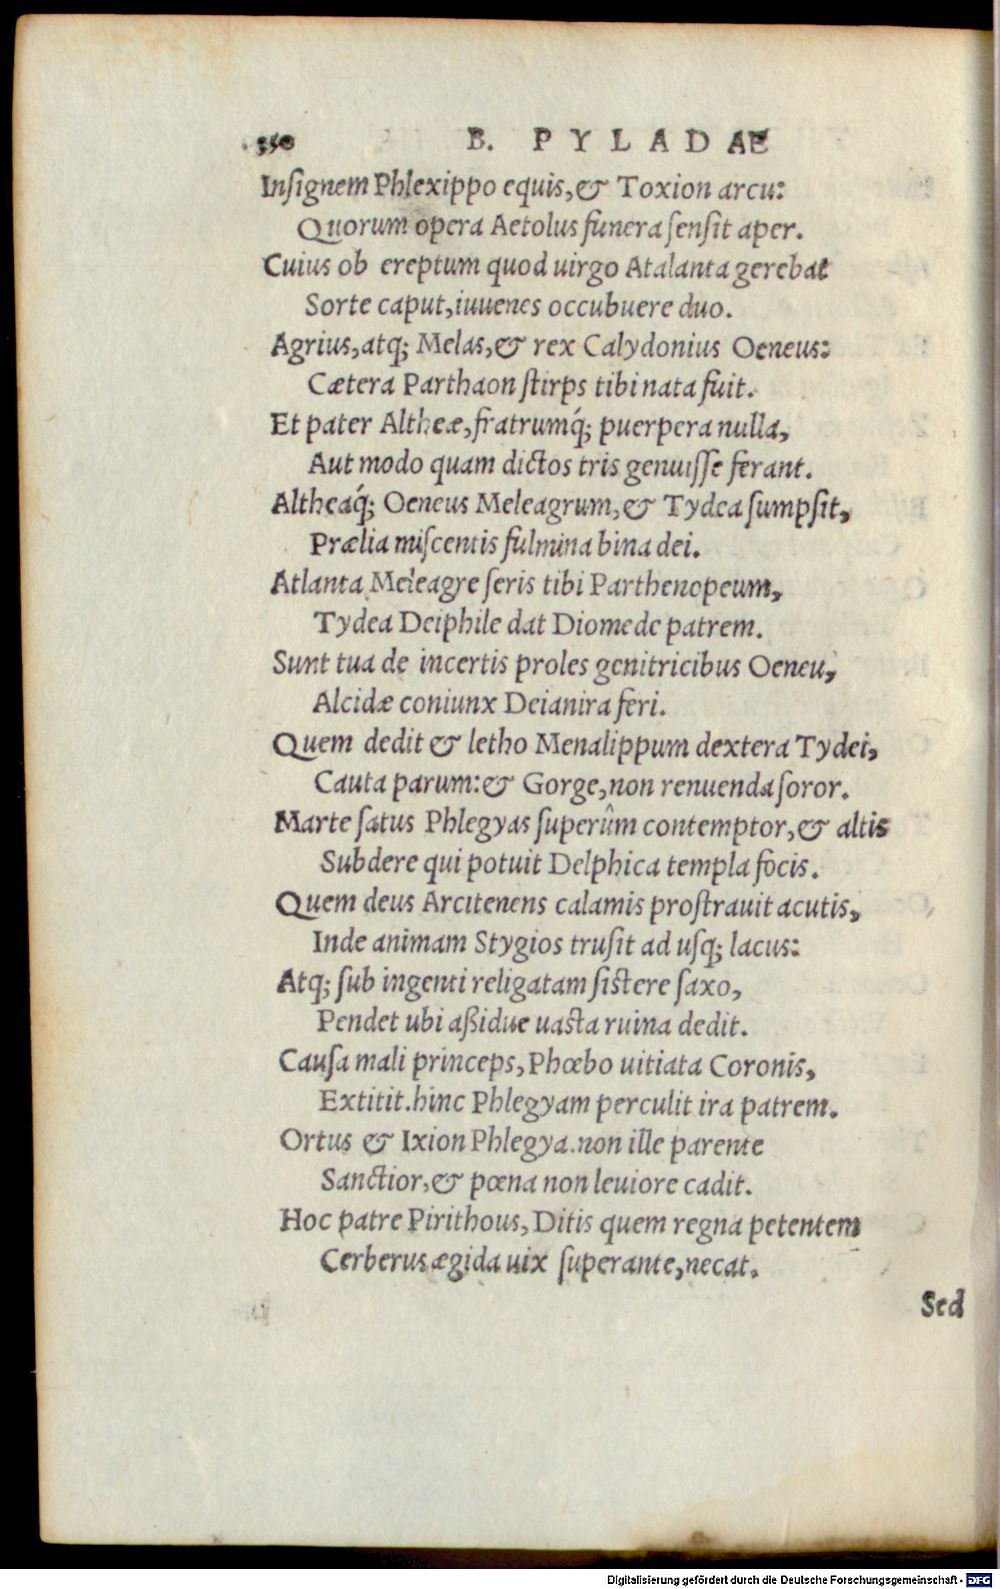 350 B. PYLADAE
Inſignem Phlexippo equis,& Toxion arcu:
Quorum opera Aetolus funera ſenſit aper.
Cuius ob ereptum quod uirgo Atalanta gerebat
Sorte caput,iuuenes occubuere duo.
Agrius,atq; Melas,& rex Calydonius Oeneus:
Cætera Parthaon ſtirps tibi nata fuit.
Et pater Altheæ,fratrumq́; puerpera nulla,
Aut modo quam dictos tris genuiſſe ferant.
Altheaq́; Oeneus Meleagrum,& Tydea ſumpſit,
Prælia miſcentis fulmina bina dei.
Atlanta Meleagre ſeris tibi Parthenopeum,
Tydea Deiphile dat Diomede patrem.
Sunt tua de incertis proles genitricibus Oeneu,
Alcidæ coniunx Deianira feri.
Quem dedit & letho Menalippum dextera Tydei,
Cauta parum:& Gorge,non renuenda ſoror.
Marte ſatus Phlegyas ſuperûm contemptor,& altis
Subdere qui potuit Delphica templa focis.
Quem deus Arcitenens calamis proſtrauit acutis,
Inde animam Stygios truſit ad uſq; lacus:
Atq; ſub ingenti religatam ſiſtere ſaxo,
Pendet ubi aßidue uasta ruina dedit.
Cauſa mali princeps,Phœbo uitiata Coronis,
Extitit.hinc Phlegyam perculit ira patrem.
Ortus & Ixion Phlegya.non ille parente
Sanctior,& pœna non leuiore cadit.
Hoc patre Pirithous,Ditis quem regna petentem
Cerberus ægida uix ſuperante,necat.
Sed
Digitalisierung gefördert durch die Deutsche Forschungsgemeinschaft - DFG